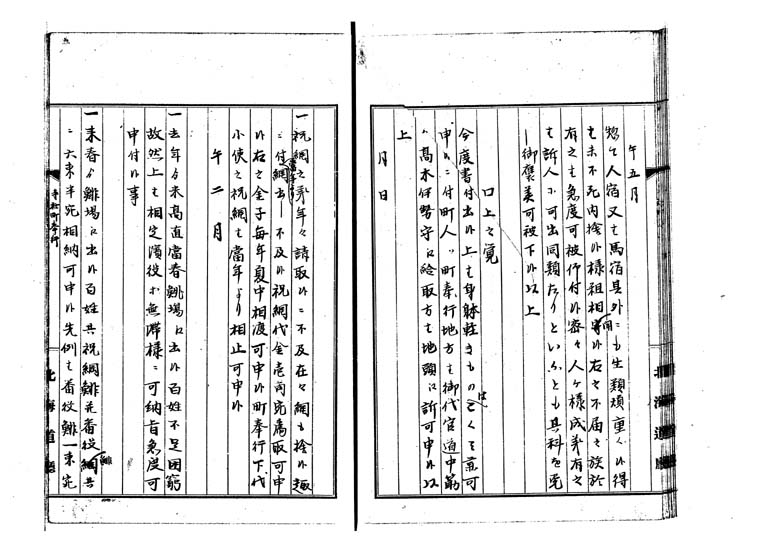 午五月
惣て人宿又も馬宿其外ニも生類煩重く候得
も未不死内捨候様粗相聞候右之不届之族於
有之も急度可被仰付候密々人ケ様成義有之
も訴人ニ可出同類たりといふとも其科を免
し御褒美可被下候以上
口上之覚
今度書付出候上も身躰軽きものことくも兼可
申候ニ付町人ハ町奉行地方も御代官道中筋
ハ高木伊勢守に給取方も地頭に訴可申候以
上
月日
一祝網之
年々請取候ニ不及在々網も捨候趣
ニ付網出し不及候祝網代金壱両宛属取可申
候右之金子毎年夏中相渡可申候町奉行下代
小使之祝網も当年より相止可申候
午二月
一去年
未高直当春鯡場に出候百姓不足困窮
故然上も相定濱役
無滞様ニ可納旨急度可
申付候事
一来春
鯡場に出候百姓共祝網鯡
番役網共
ニ六束半宛相納可申候先例も番役鯡一束宛
寺社町奉行
北海道廳
北海道廳